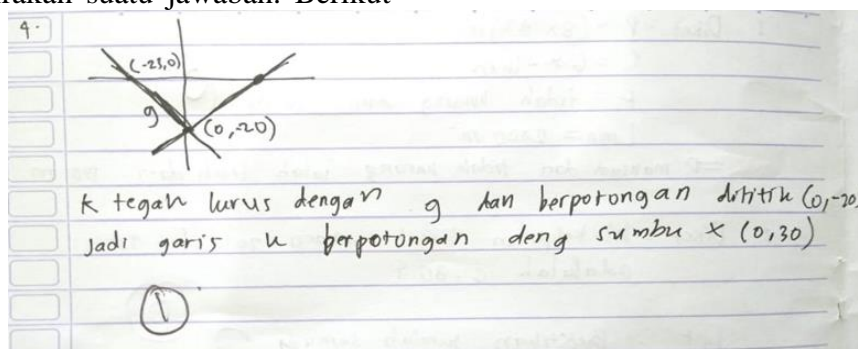 rakan suatu jawaban. Berikut
4.
(-25,0)
g
(0,-20)
k tegak lurus dengan g dan berpotongan dititik (0,-20)
Jadi garis k berpotongan deng sumbu x (0,30)
1